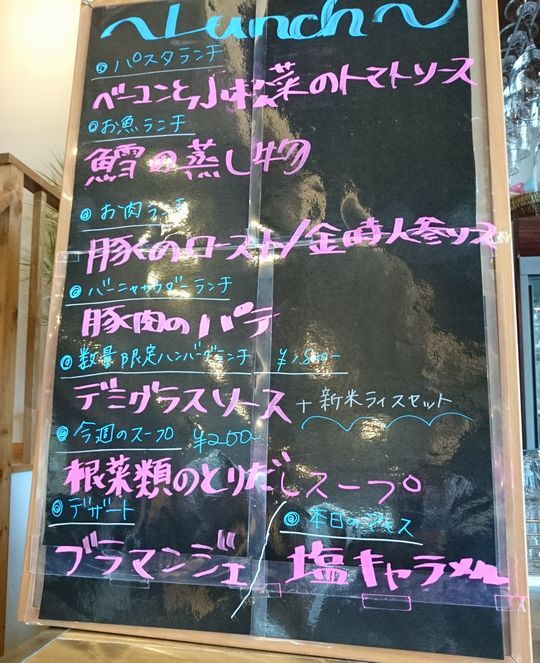 ～Lunch～
◎パスタランチ
ベーコンと小松菜のトマトソース
◎お魚ランチ
鱈の蒸し物
◎お肉ランチ
豚くのロースト/金時人参ソース
◎バーニャカウダーランチ
豚肉のパテ
◎数量限定ハンバーグランチ ¥1,800-
デミグラスソース +新米ライスセット
◎今週のスープ ¥200-
根菜類のとりだしスープ
◎デザート
ブラマンジェ
◎本日のアイス
塩キャラメル